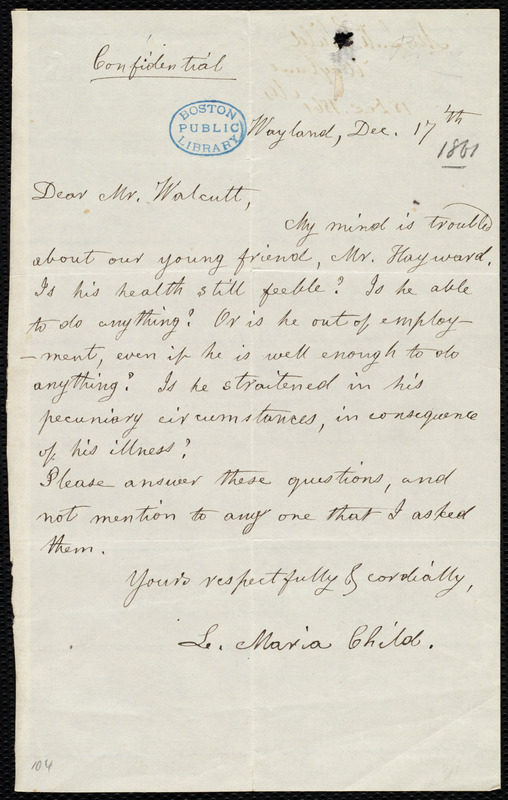 Confidential
BOSTON
PUBLIC
LIBRARY
Wayland, Dec. 17'th
1861
Dear Mr. Walcutt,
My mind is troubled
about our young friend, Mr. Hayward.
Is his health still feeble? Is he able
to do anything? Or is he out of employ-
-ment, even if he is well enough to do
anything? Is he straitened in his
pecuniary circumstances, in consequence
of his illness?
Please answer these questions, and
not mention to any one that I asked
them.
Yours respectfully & cordially,
L. Maria Child.
104